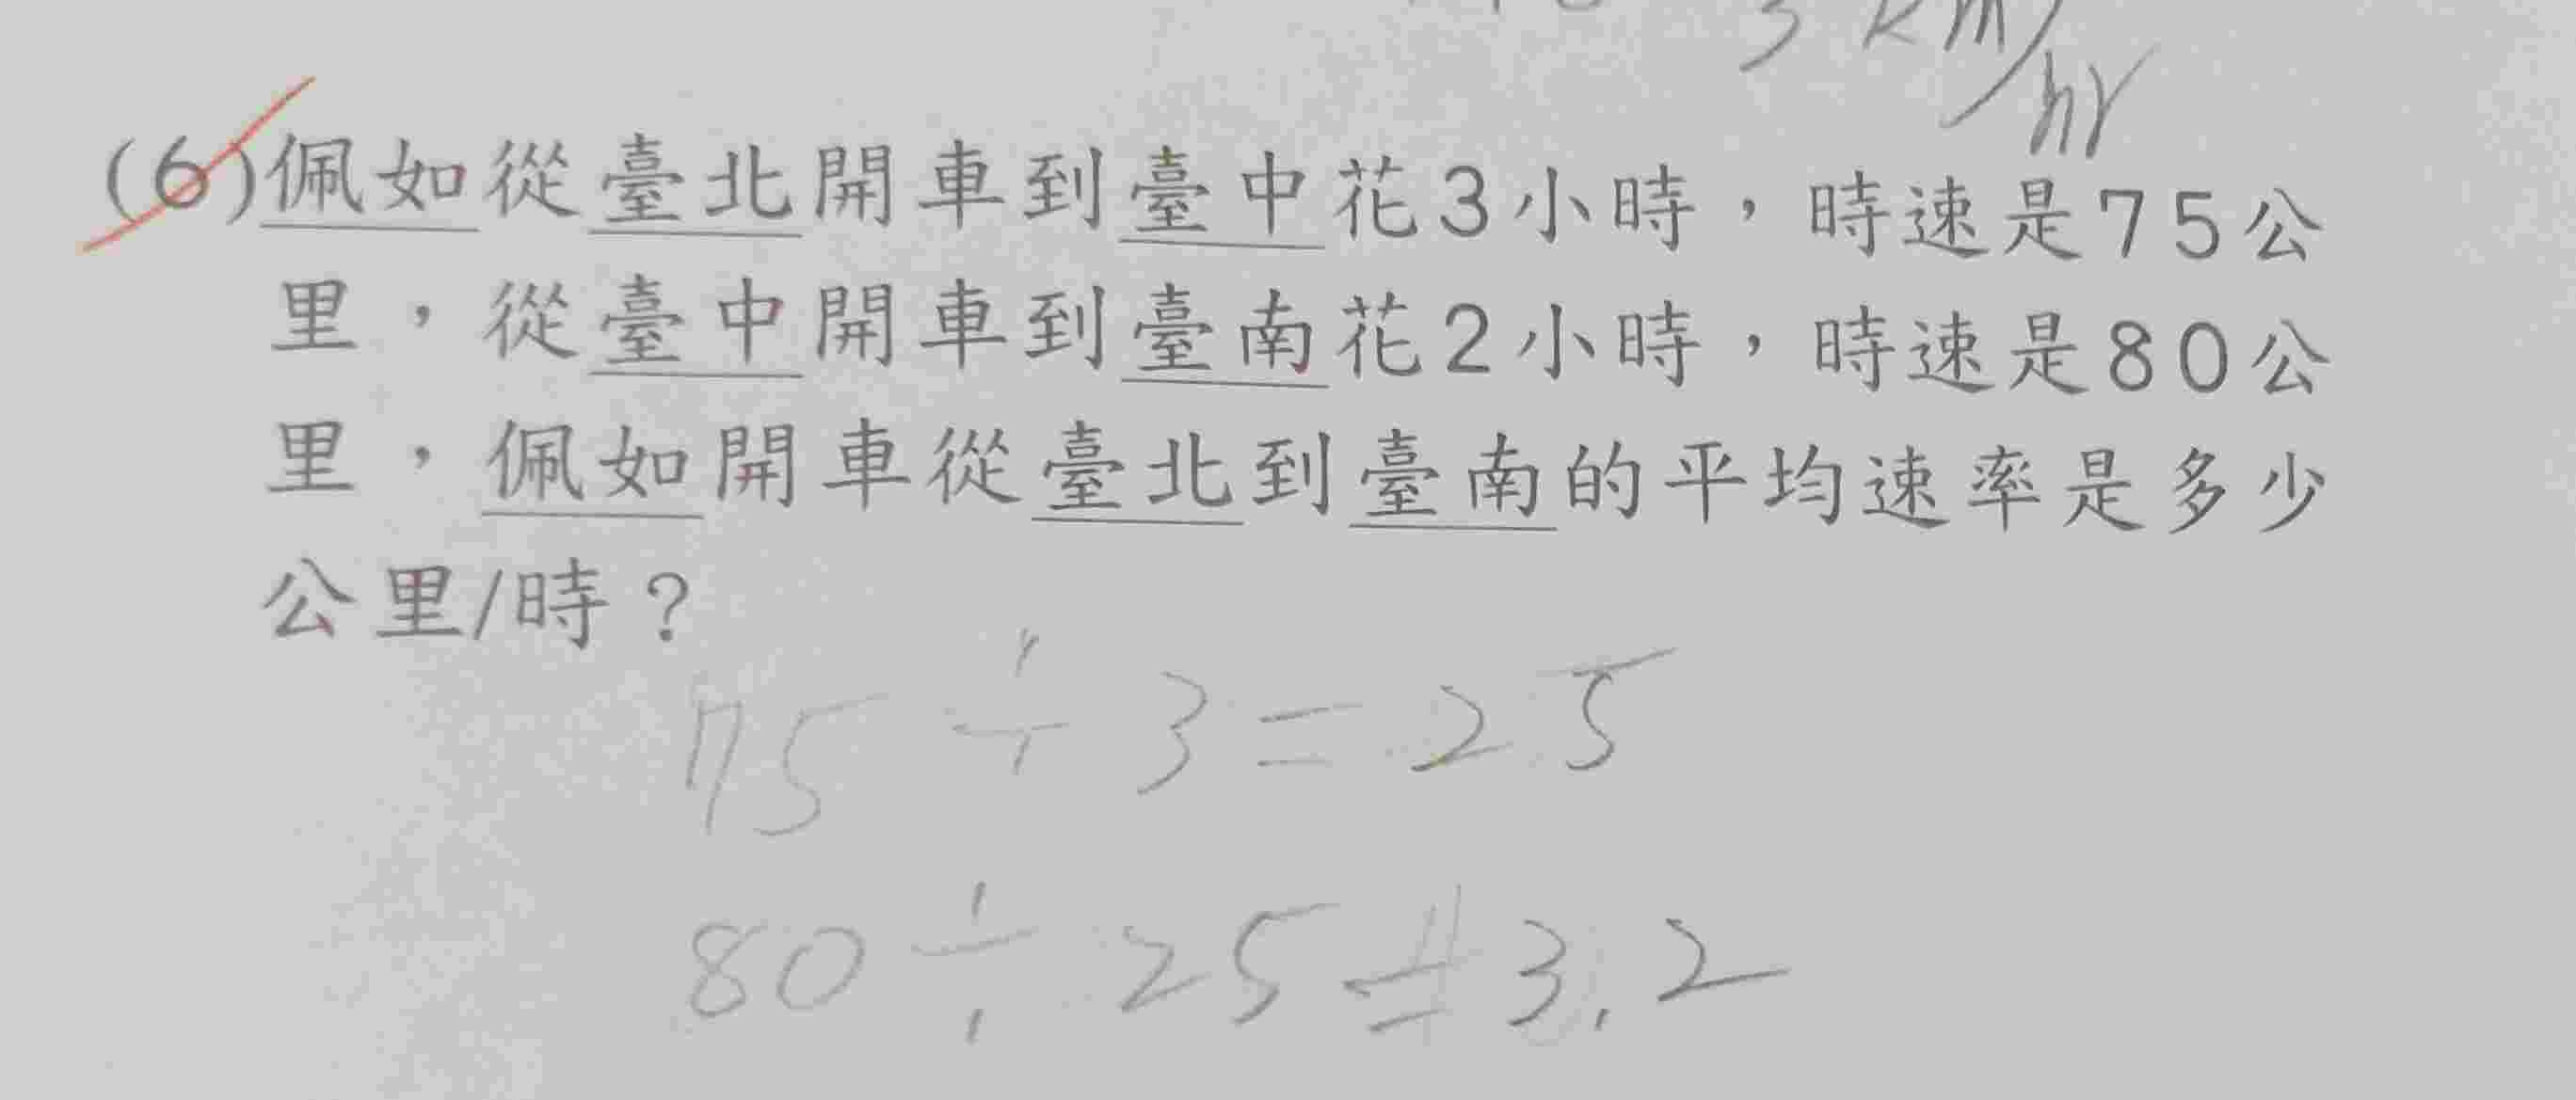 3 km/hr
(6)佩如從臺北開車到臺中花3小時，時速是75公
里，從臺中開車到臺南花2小時，時速是80公
里，佩如開車從臺北到臺南的平均速率是多少
公里/時？
75÷3=25
80÷25=3.2